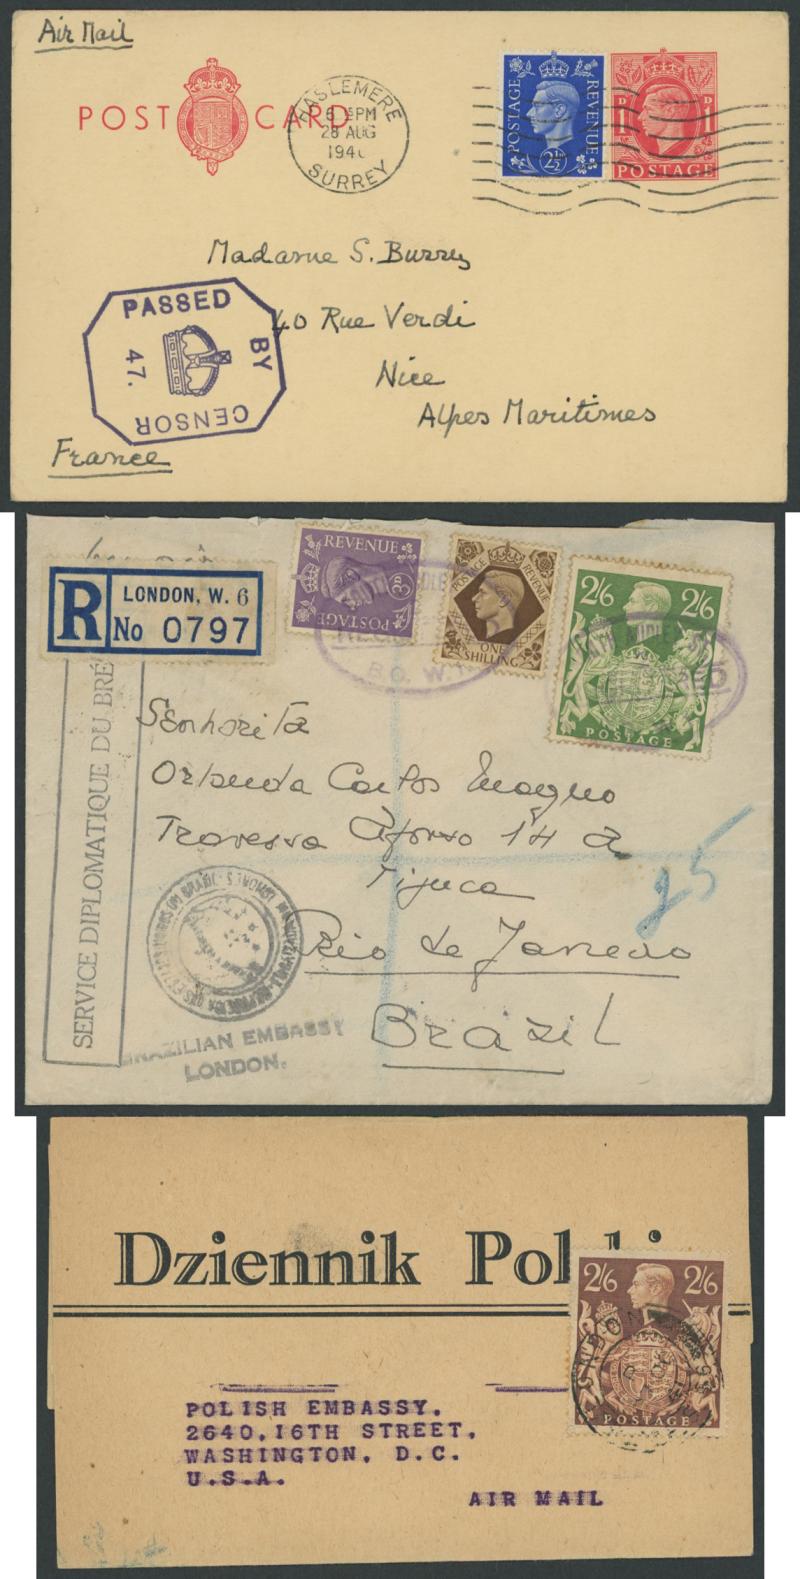 Air Mail
POST CARD
HASLEMERE
6 15PM
28 AUG
194
SURREY
POSTAGE REVENUE
2½
1 D 1 D
POSTAGE
Madame S. Burrey
40 Rue Verdi
Nice
Alpes Maritimes
PASSED BY CENSOR
47.
France
R
LONDON, W. 6
No 0797
REVENUE
3D
POSTAGE
POSTAGE REVENUE
ONE SHILLING
2/6 2/6
POSTAGE
B.O. W.1
SERVICE DIPLOMATIQUE DU BRÉ
Senhorita
Orlanda Carlos Magno
Travessa Afonso 14 A
Tijuca
Rio de Janeiro
Brazil
25
BRAZILIAN EMBASSY
LONDON.
Dziennik Pol
2/6 2/6
POSTAGE
LONDON
POLISH EMBASSY.
2640.16TH STREET.
WASHINGTON. D.C.
U.S.A.
AIR MAIL